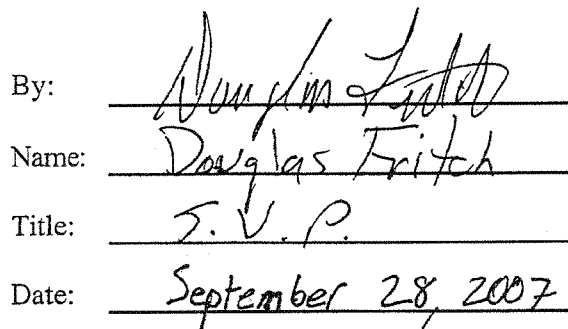 By: Douglas Fritch
Name: Douglas Fritch
Title: S. V. P.
Date: September 28, 2007